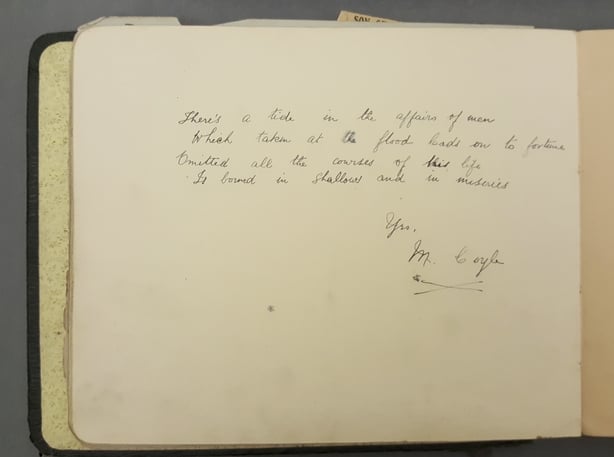 SON OF
There's a tide in the affairs of men
Which taken at the flood leads on to fortune
Omitted all the courses of this life
Is bound in shallows and in miseries
Yrs,
M. Coyle